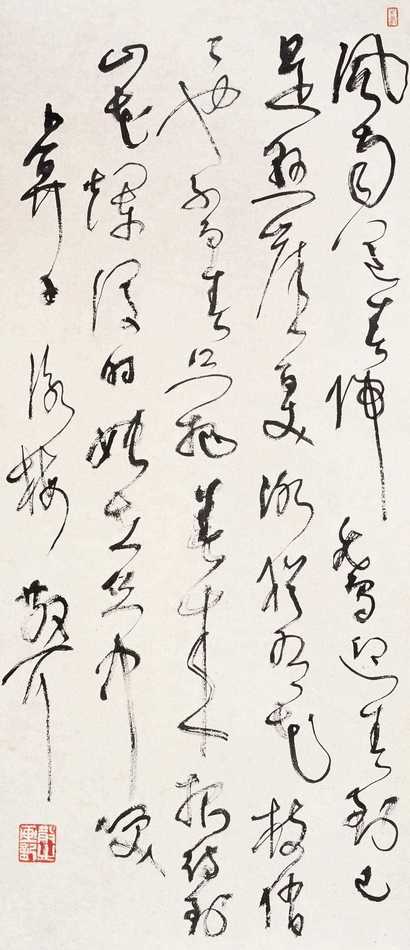 風雨送春歸飛雪迎春到已
是懸崖百丈冰猶有花枝俏
々也不爭春只把春來報待到
山花爛漫時她在叢中笑
卜算子 詠梅 散耳